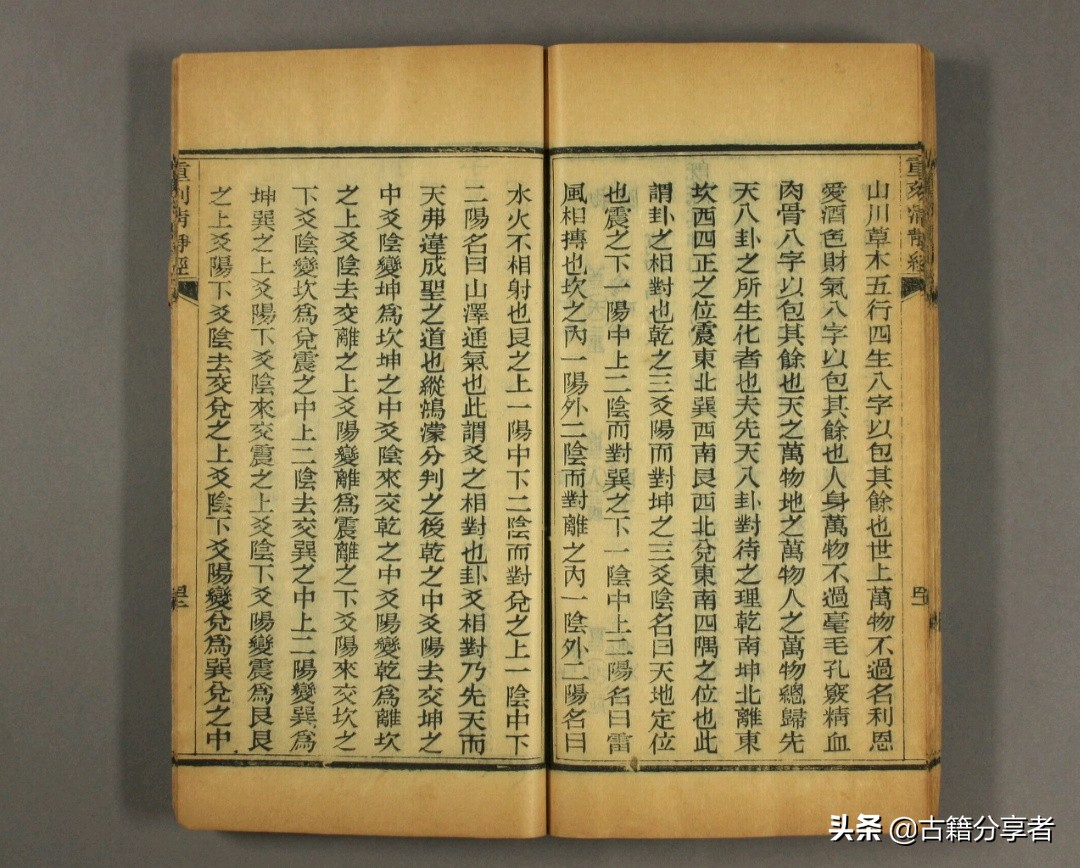 重刻清靜經
山川草木五行四生八字以包其餘也世上萬物不過名利恩
愛酒色財氣八字以包其餘也人身萬物不過毫毛孔竅精血
肉骨八字以包其餘也天之萬物地之萬物人之萬物總歸先
天八卦之所生化者也夫先天八卦對待之理乾南坤北離東
坎西四正之位震東北巽西南艮西北兌東南四隅之位也此
謂卦之相對也乾之三爻陽而對坤之三爻陰名曰天地定位
也震之下一陽中上二陰而對巽之下一陰中上二陽名曰雷
風相搏也坎之內一陽外二陰而對離之內一陰外二陽名曰
水火不相射也艮之上一陽中下二陰而對兌之上一陰中下
二陽名曰山澤通氣也此謂爻之相對也卦爻相對乃先天而
天弗違成聖之道也縱鴻濛分判之後乾之中爻陽去交坤之
中爻陰變坤為坎坤之中爻陰來交乾之中爻陽變乾為離坎
之上爻陰去交離之上爻陽變離為震離之下爻陽來交坎之
下爻陰變坎為兌震之中上二陰去交巽之中上二陽變巽為
坤巽之上爻陽下爻陰來交震之上爻陰下爻陽變震為艮艮
之上爻陽下爻陰去交兌之上爻陰下爻陽變兌為巽兌之中
重刻清靜經
头条 @古籍分享者